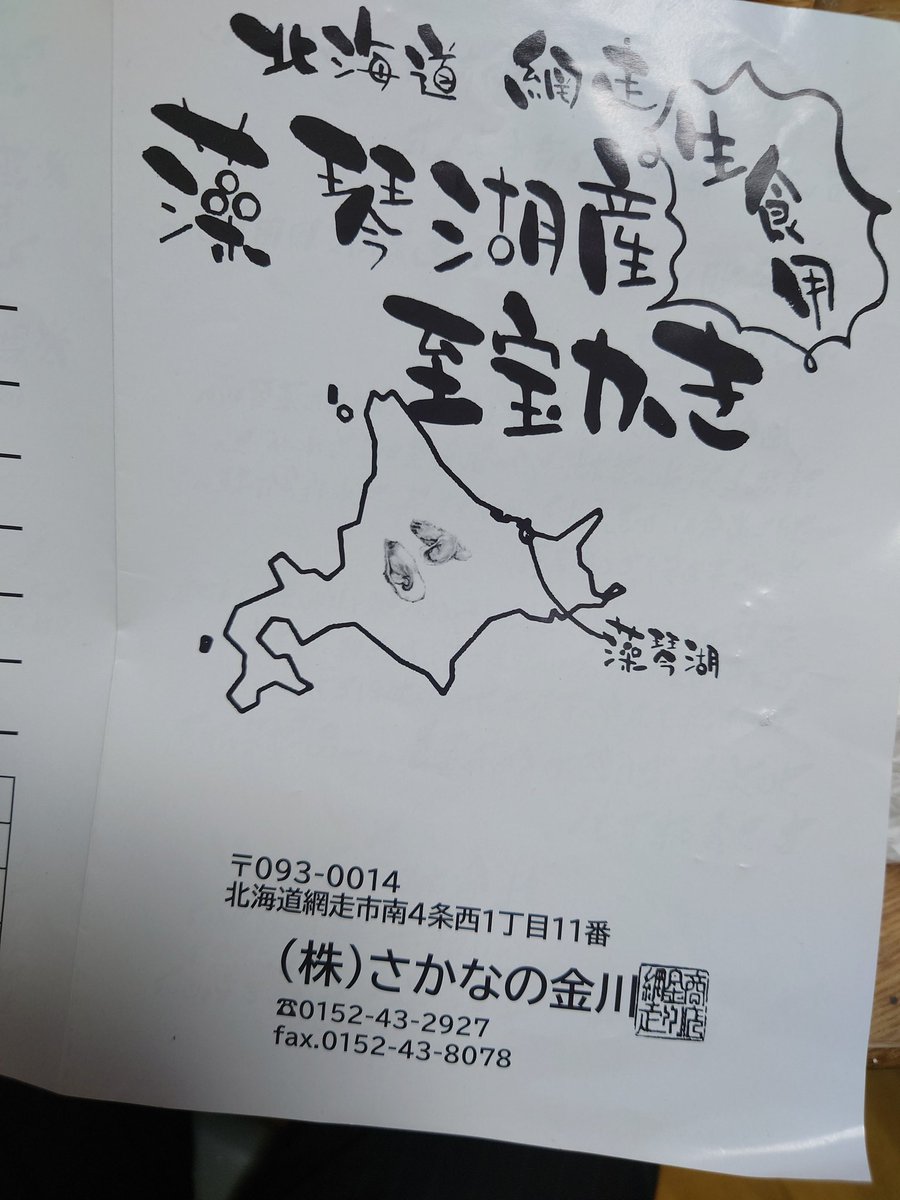 北海道 網走
生食用
藻琴湖産
至宝かき
藻琴湖
〒093-0014
北海道網走市南4条西1丁目11番
(株)さかなの金川
☎0152-43-2927
fax.0152-43-8078
網走金川商店